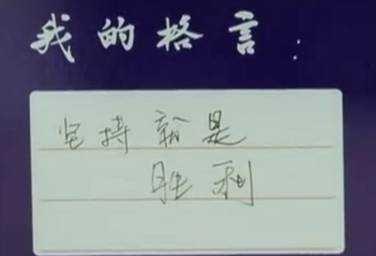 我的格言:
坚持就是
胜利